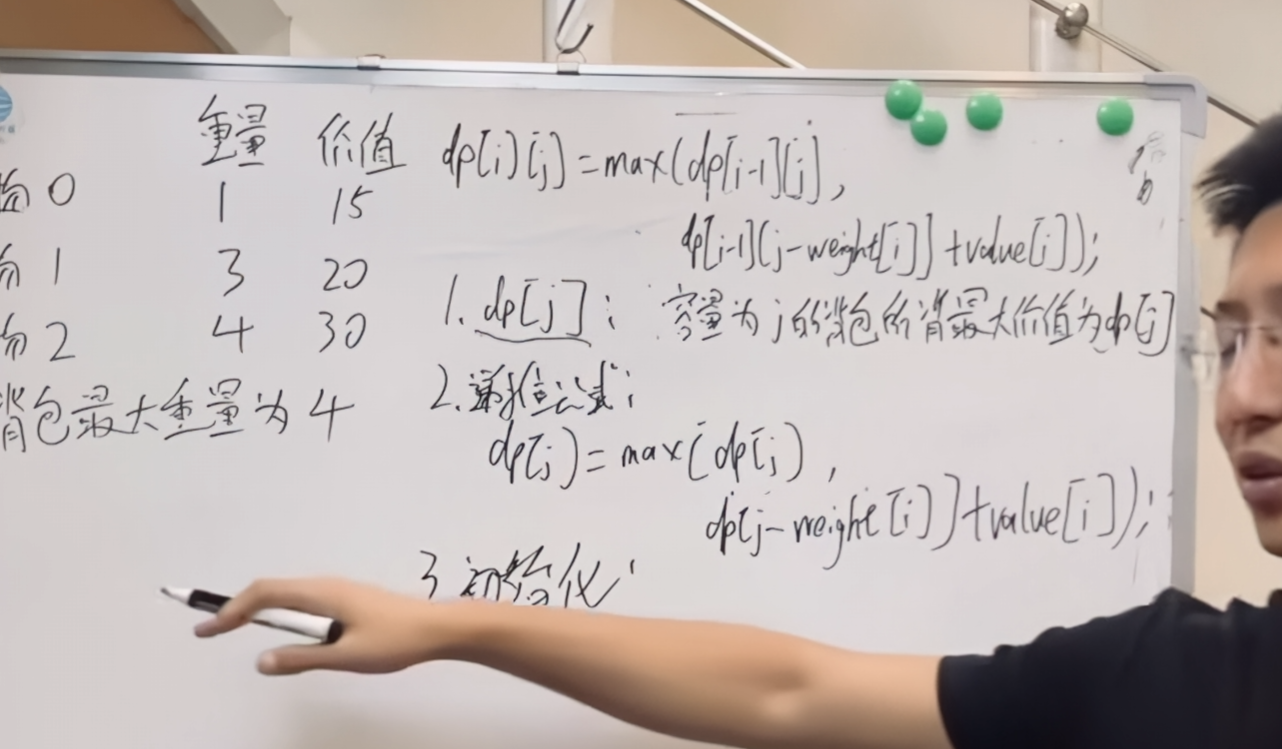 重量 价值
物 0 1 15
物 1 3 20
物 2 4 30
背包最大重量为 4
dp[i][j]=max(dp[i-1][j],
dp[i-1][j-weight[i]]+value[i]);
1. dp[j]: 容量为j的背包所背最大价值为dp[j]
2. 递推公式:
dp[j]=max(dp[j],
dp[j-weight[i]]+value[i]);
3 初始化: